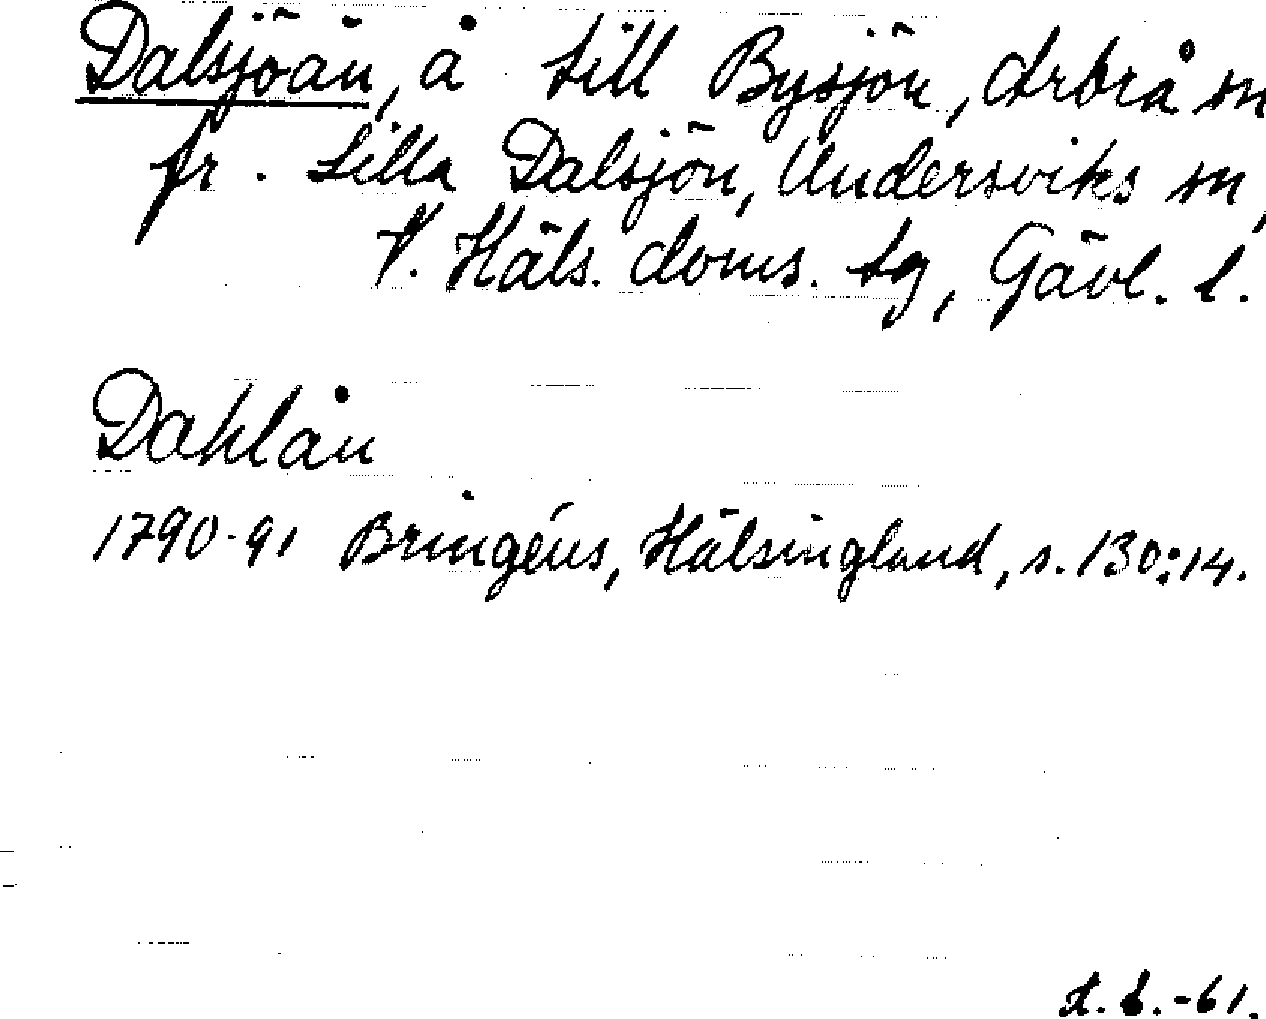 Dalsjöån, å till Bysjön, Arbrå sn
fr. Lilla Dalsjön, Undersviks sn,
V. Häls. doms. tg, Gävl. l.
Dahlån
1790-91 Bringéus, Hälsingland, s. 130:14.
-61.